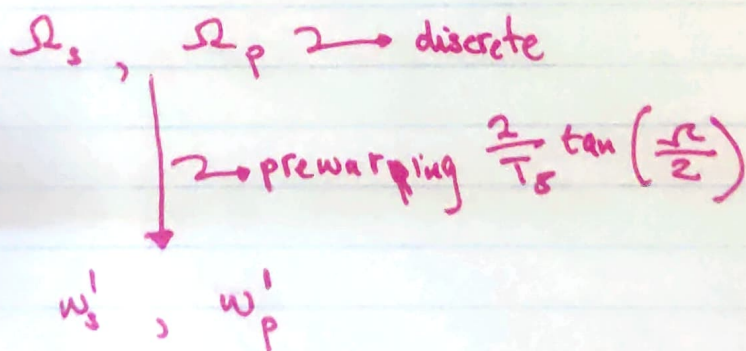 Ω_s , Ω_p → discrete
→ prewarping 2/T_s tan (Ω/2)
w'_s , w'_p